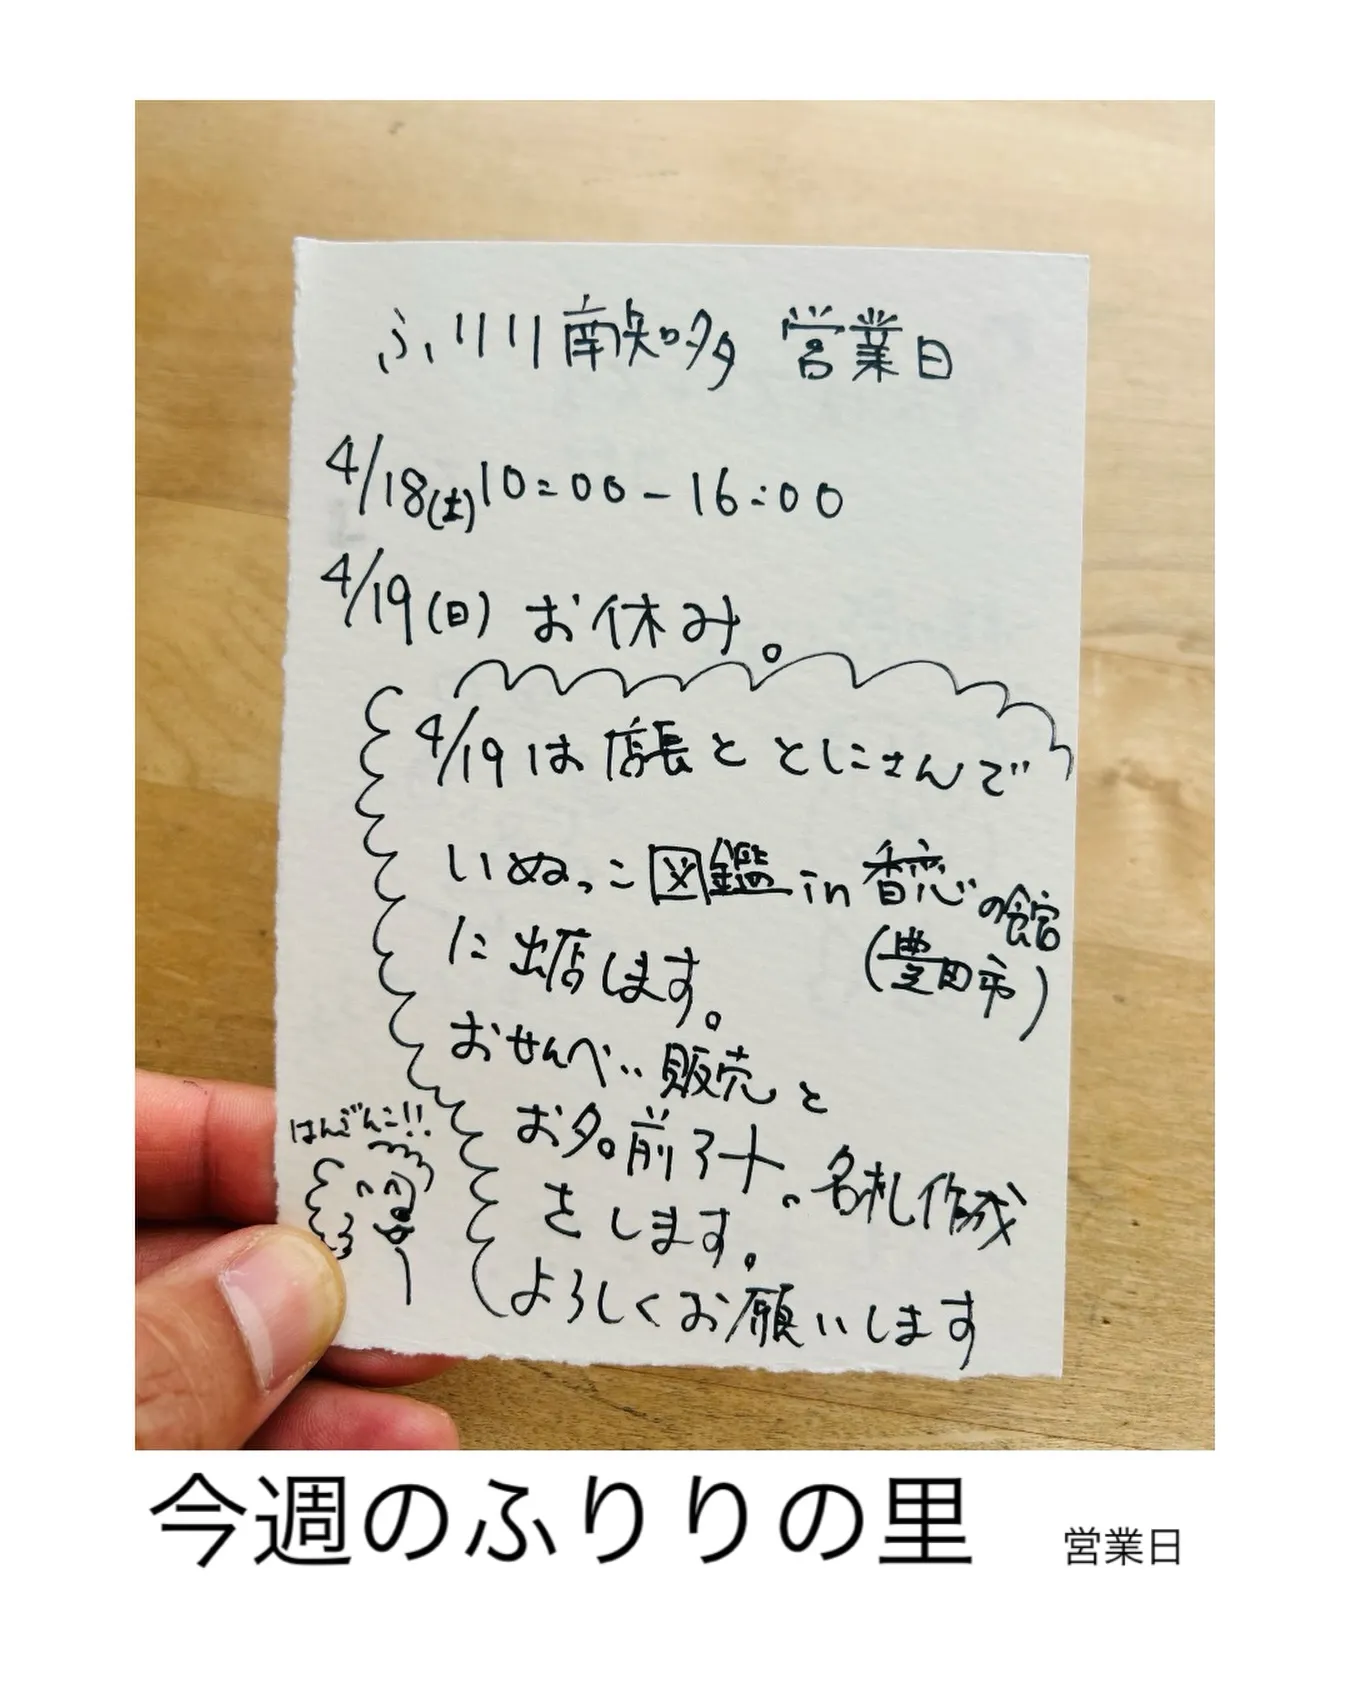 ふりり南知多 営業日
4/18(土)10:00-16:00
4/19(日) お休み。
4/19は店長ととしこさんで
いぬっこ図鑑in香恋の館
(豊田市)
に出店します。
おせんべい販売と
お名前アート。名札作成
をします。
よろしくお願いします
はんぺんこ!!
今週のふりりの里 営業日